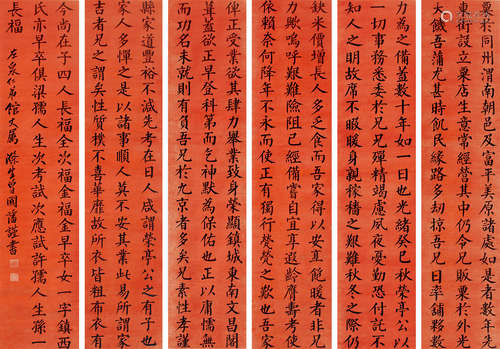 粟於同州朝邑及富平美原渭南諸處如是者數年矣先
東街設立粟店生意常經營其中仍令兄販粟於外光
大飢吾蒲尤甚時飢民緣路多刧掠吾兄日率舖夥數
力為之備蓋數十年如一日也光緒癸巳秋榮亭公以
一切事務悉委於兄兄殫精竭慮夙夜憂勤恐付託不
知人之明故席不暇暖身親稼穡之艱難秋冬之際仍
鈌米價增長人多乏食而吾家得以安直飽暖者非兄
力歟嗚呼艱難險阻已經備嘗自宜享遐齡膺壽考使
依賴奈何降年不永而使正有獨行煢煢之歎也吾家
俾正受業欲其肆力舉業致身榮顯鎮城東南文昌閣
葺蓋欲正早登科第而乞神默為保佑也正庸愞無
而功名未就則有負吾兄於九京者多矣兄素性孝謹
縣家道豐裕不減先考在日人咸謂榮亭公之有子也
家人多憚之是以諸事順人莫不安其業此易所謂家
吉者兄之謂矣性質樸不喜華靡故所衣皆粗布衣有
今尚在子四人長福全次福金福金早卒女一字鎮西
氏亦早卒俱梁孺人生次考試次應試許孺人生孫一
長福
館史屬
滌生曾國藩謹書